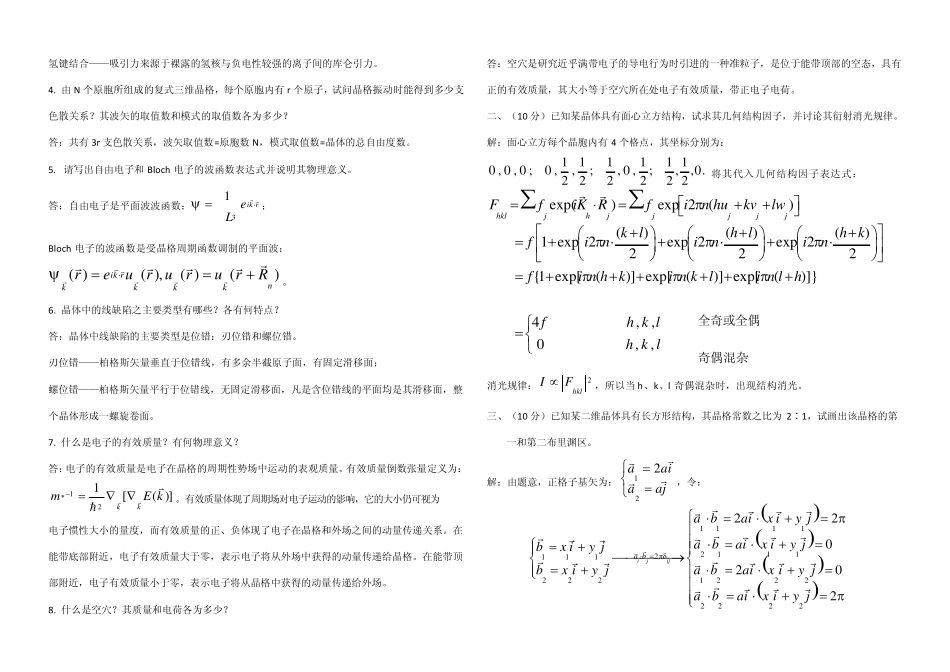 氢键结合——吸引力来源于裸露的氢核与负电性较强的离子间的库仑引力。
4. 由 N 个原胞所组成的复式三维晶格，每个原胞内有 r 个原子，试问晶格振动时能得到多少支
色散关系？其波矢的取值数和模式的取值数各为多少？
答：共有 3r 支色散关系，波矢取值数=原胞数 N，模式取值数=晶体的总自由度数。
5. 请写出自由电子和 Bloch 电子的波函数表达式并说明其物理意义。
答：自由电子是平面波波函数：ψ = 1/L³ e^{ik⃗·r⃗}；
Bloch 电子的波函数是受晶格周期函数调制的平面波：
ψ_k⃗(r⃗) = e^{ik⃗·r⃗}u_k⃗(r⃗), u_k⃗(r⃗) = u_k⃗(r⃗ + R⃗_n)。
6. 晶体中的线缺陷之主要类型有哪些？各有何特点？
答：晶体中线缺陷的主要类型是位错：刃位错和螺位错。
刃位错——柏格斯矢量垂直于位错线，有多余半截原子面，有固定滑移面；
螺位错——柏格斯矢量平行于位错线，无固定滑移面，凡是含位错线的平面均是其滑移面，整
个晶体形成一螺旋卷面。
7. 什么是电子的有效质量？有何物理意义？
答：电子的有效质量是电子在晶格的周期性势场中运动的表观质量。有效质量倒数张量定义为：
m*⁻¹ = 1/ħ² ∇_k⃗[∇_k⃗E(k⃗)]。有效质量体现了周期场对电子运动的影响，它的大小仍可视为
电子惯性大小的量度，而有效质量的正、负体现了电子在晶格和外场之间的动量传递关系。在
能带底部附近，电子有效质量大于零，表示电子将从外场中获得的动量传递给晶格。在能带顶
部附近，电子有效质量小于零，表示电子将从晶格中获得的动量传递给外场。
8. 什么是空穴？其质量和电荷各为多少？
答：空穴是研究近乎满带电子的导电行为时引进的一种准粒子，是位于能带顶部的空态，具有
正的有效质量，其大小等于空穴所在处电子有效质量，带正电子电荷。
二、（10 分）已知某晶体具有面心立方结构，试求其几何结构因子，并讨论其衍射消光规律。
解：面心立方每个晶胞内有 4 个格点，其坐标分别为：
0,0,0; 0,1/2,1/2; 1/2,0,1/2; 1/2,1/2,0. 将其代入几何结构因子表达式：
F_hkl = ∑f_j exp(iK⃗_h·R⃗_j) = ∑f_j exp[i2πn(hu_j + kv_j + lw_j)]
= f(1+exp(i2πn·(k+l)/2)+exp(i2πn·(h+l)/2)+exp(i2πn·(h+k)/2))
= f{1+exp[iπn(h+k)]+exp[iπn(k+l)]+exp[iπn(l+h)]}
= {4f h,k,l 全奇或全偶
0 h,k,l 奇偶混杂
消光规律：I ∝ |F_hkl|²，所以当 h、k、l 奇偶混杂时，出现结构消光。
三、（10 分）已知某二维晶体具有长方形结构，其晶格常数之比为 2∶1，试画出该晶格的第
一和第二布里渊区。
解：由题意，正格子基矢为：{a⃗_1 = 2ai⃗
a⃗_2 = aj⃗ ，令：
{b⃗_1 = x_1i⃗ + y_1j⃗
b⃗_2 = x_2i⃗ + y_2j⃗
a⃗_i·b⃗_j=2πδ_ij →
{a⃗_1·b⃗_1 = 2ai⃗·(x_1i⃗ + y_1j⃗) = 2π
a⃗_2·b⃗_1 = ai⃗·(x_1i⃗ + y_1j⃗) = 0
a⃗_1·b⃗_2 = 2ai⃗·(x_2i⃗ + y_2j⃗) = 0
a⃗_2·b⃗_2 = ai⃗·(x_2i⃗ + y_2j⃗) = 2π